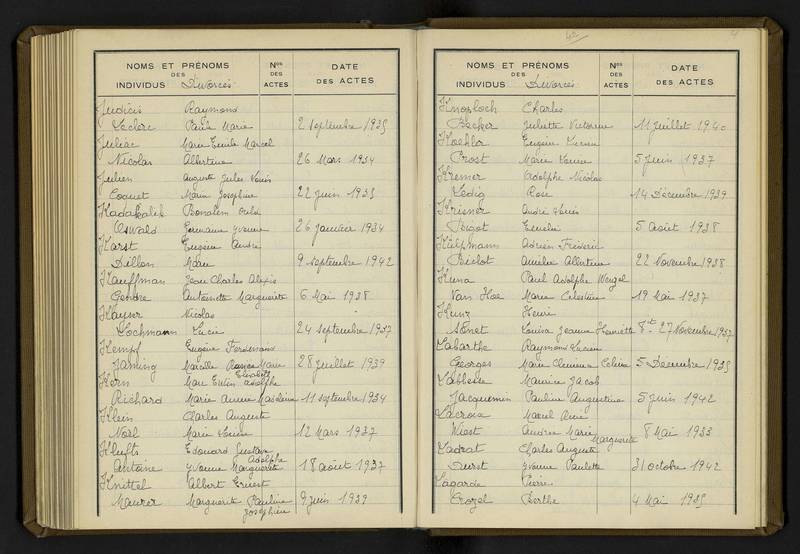 NOMS ET PRÉNOMS Nos DATE
DES DES
INDIVIDUS Divorcés ACTES DES ACTES
Judicis Raymond
Leclerc Paule Marie 2 septembre 1935
Juliac Marie Emile Marcel
Nicolas Albertine 26 Mars 1934
Julien Auguste Jules Louis
Coquet Marie Joséphine 22 juin 1935
Kadakalil
Oswald Germaine Yvonne 26 janvier 1934
Karst Eugène André
Dillon 9 septembre 1942
Kauffman Jean Charles Alexis
Gendre Antoinette Marguerite 6 Mai 1938
Kayser Nicolas
Lochmann Lucie 24 septembre 1937
Kempf Eugène Ferdinand
Marcelle Marie 28 juillet 1939
Elisabeth
Kern Marc Adolphe
Richard Marie Anne Madeleine 11 septembre 1934
Klein Charles Auguste
Noël Marie Louise 12 Mars 1937
Edouard Gustave
Adolphe
Antoine Yvonne Marguerite 18 août 1937
Knittel Albert Ernest
Maurer Marguerite Pauline 9 juin 1939
Joséphine
42
NOMS ET PRÉNOMS Nos DATE
DES DES
INDIVIDUS Divorcés ACTES DES ACTES
Knobloch Charles
Becker Juliette Victorine 11 juillet 1940
Koehler Eugène Lucien
Prost Marie Louise 5 juin 1937
Kremer Adolphe Nicolas
Ledig Rose 14 Décembre 1939
Krisner André Louis
Emélie 5 août 1938
Külzmann Adrien Frédéric
Biclot Amélie Albertine 22 Novembre 1938
Kuna Paul Adolphe
Van Hoe Marie Célestine 19 Mai 1937
Kunz Henri
Louisa Jeanne Henriette 27 Novembre 1937
Labarthe Raymond Lucien
Georges Marie Clémence Célina 5 Décembre 1935
Labbesse Maurice Jacob
Jacquemin Pauline Augustine 5 juin 1942
Lacroix Marcel Aimé
Wiest Andrée Marie 8 Mai 1933
Marguerite
Ladrat Charles Auguste
Durst Yvonne Paulette 31 octobre 1942
Lagarde Pierre
Crozel Berthe 4 Mai 1935